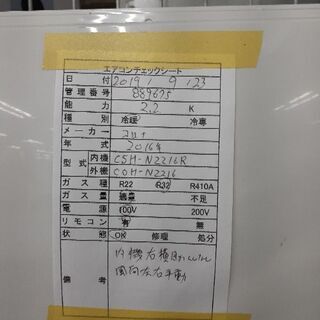 エアコンチェックシート
日 付 2019 / 9 / 23
管理番号 889675
能力 2.2 K
種別 冷暖 冷専
メーカー コロナ
年式 2016年
型式 内機 CSH-N2216R
外機 COH-N2216
ガス種 R22 R32 R410A
ガス量 適量 不足
電源 100V 200V
リモコン 有 無
状態 OK 修理 処分
備考 内機右横
風向左右手動